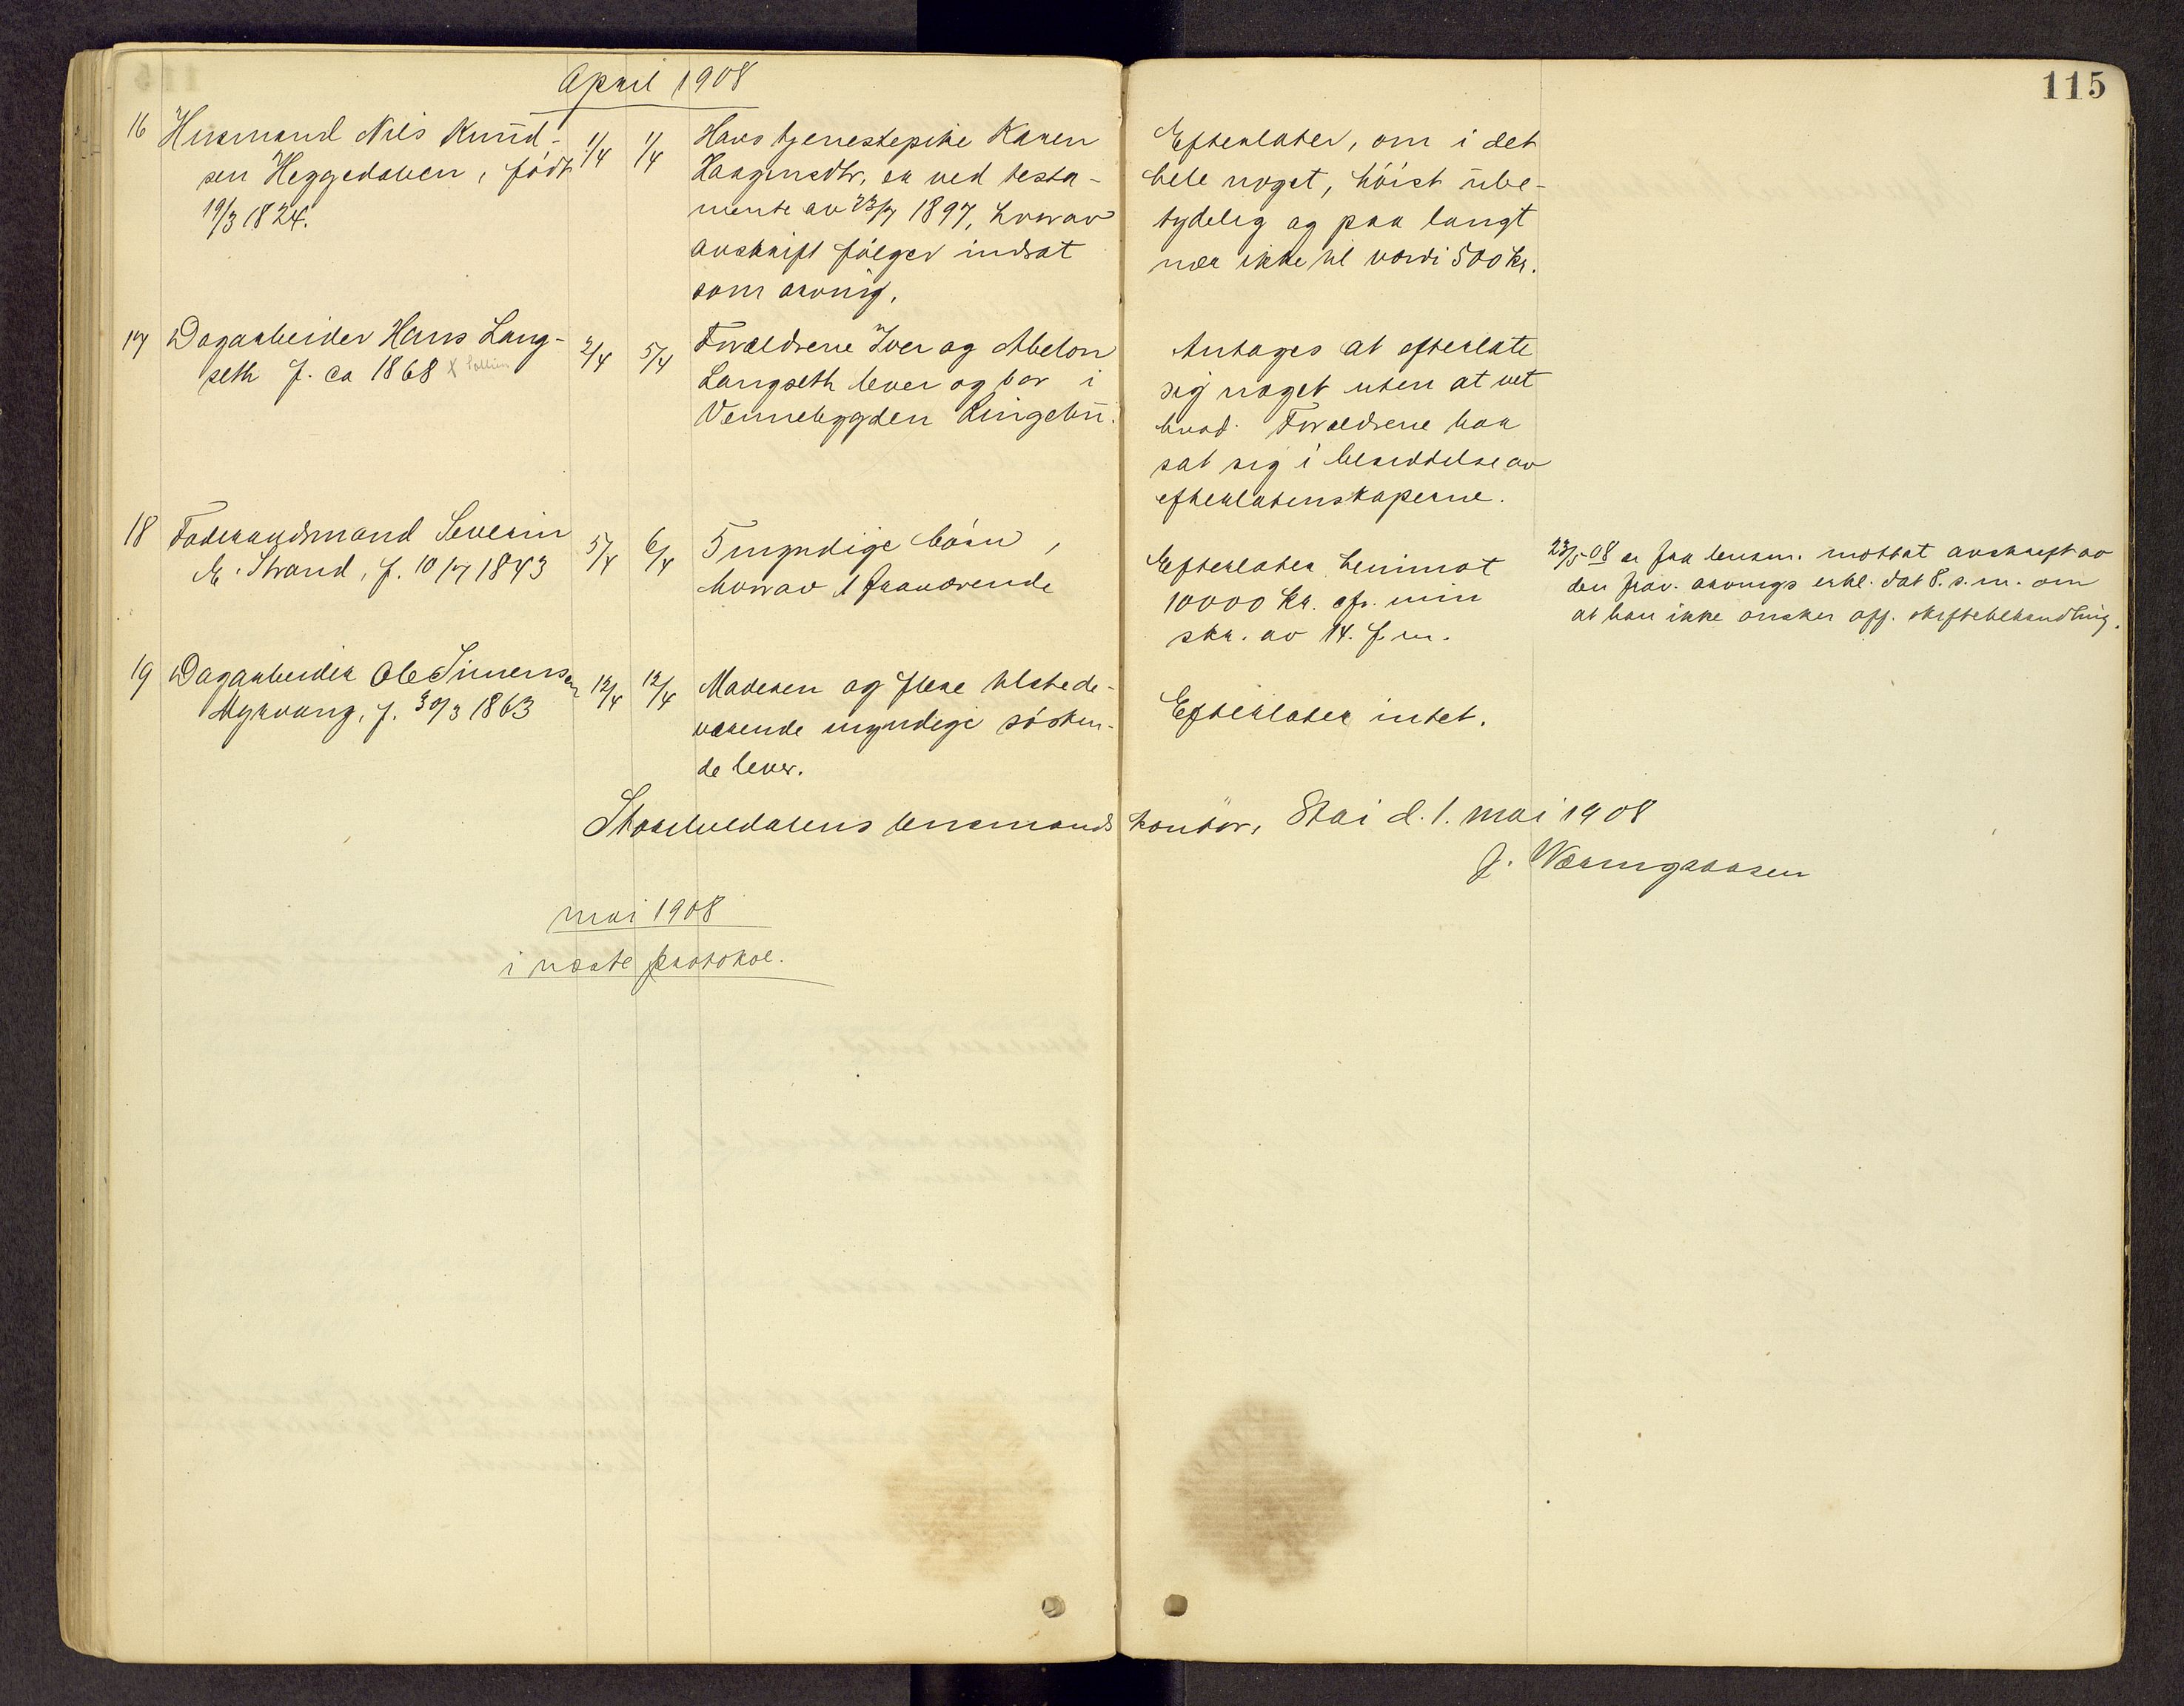 115
April 1908
16 Husmand Nils Knud-
sen Heggedalen, født
19/3 1824.
1/4 1/4
Hans tjenestepike Karen
Haagensdtr. er ved testa-
mente av 23/7 1897, hvorav
avskrift følger indsat
som arving.
Efterlater, om i det
hele noget, høist ube-
tydelig og paa langt
nær ikke til værdi 500 kr.
17 Dagarbeider Hans Lang-
seth f. ca 1868 x Sollien
2/4 5/4
Forældrene Iver og Abelon
Langseth lever og bor i
Vennebygden Ringebu.
Antages at efterlate
sig noget uten at vet
hvad. Forældrene har
sat sig i besiddelse av
efterlatenskaperne.
18 Føderaadsmand Severin
E. Strand, f. 10/7 1843
5/4 6/4
5 myndige børn,
hvorav 1 fraværende
Efterlater henimot
10000 kr. cfr. min
skr. av 14. f. m.
23/5 08 er fra lensm. mottat avskrift av
den frav. arvings erkl. dat 8. s. m. om
at han ikke ønsker off. skiftebehandling.
19 Dagarbeider Ole Simensen
Myrvang, f. 30/3 1863
12/4 12/4
Moderen og flere tilstede-
værende myndige søsken-
de lever.
Efterlater intet.
Storelvedalens lensmands kontor, Stai d. 1. mai 1908
J. Wæringsaasen
mai 1908
i næste protokol.